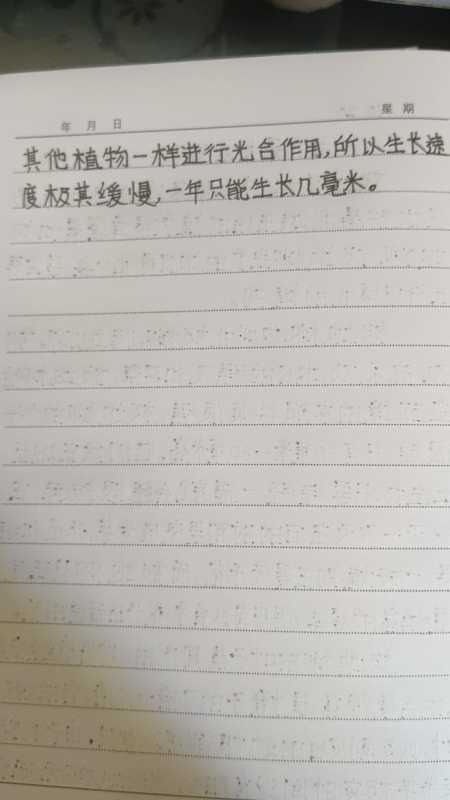 年 月 日 星 期
其他植物一样进行光合作用,所以生长速
度极其缓慢,一年只能生长几毫米。